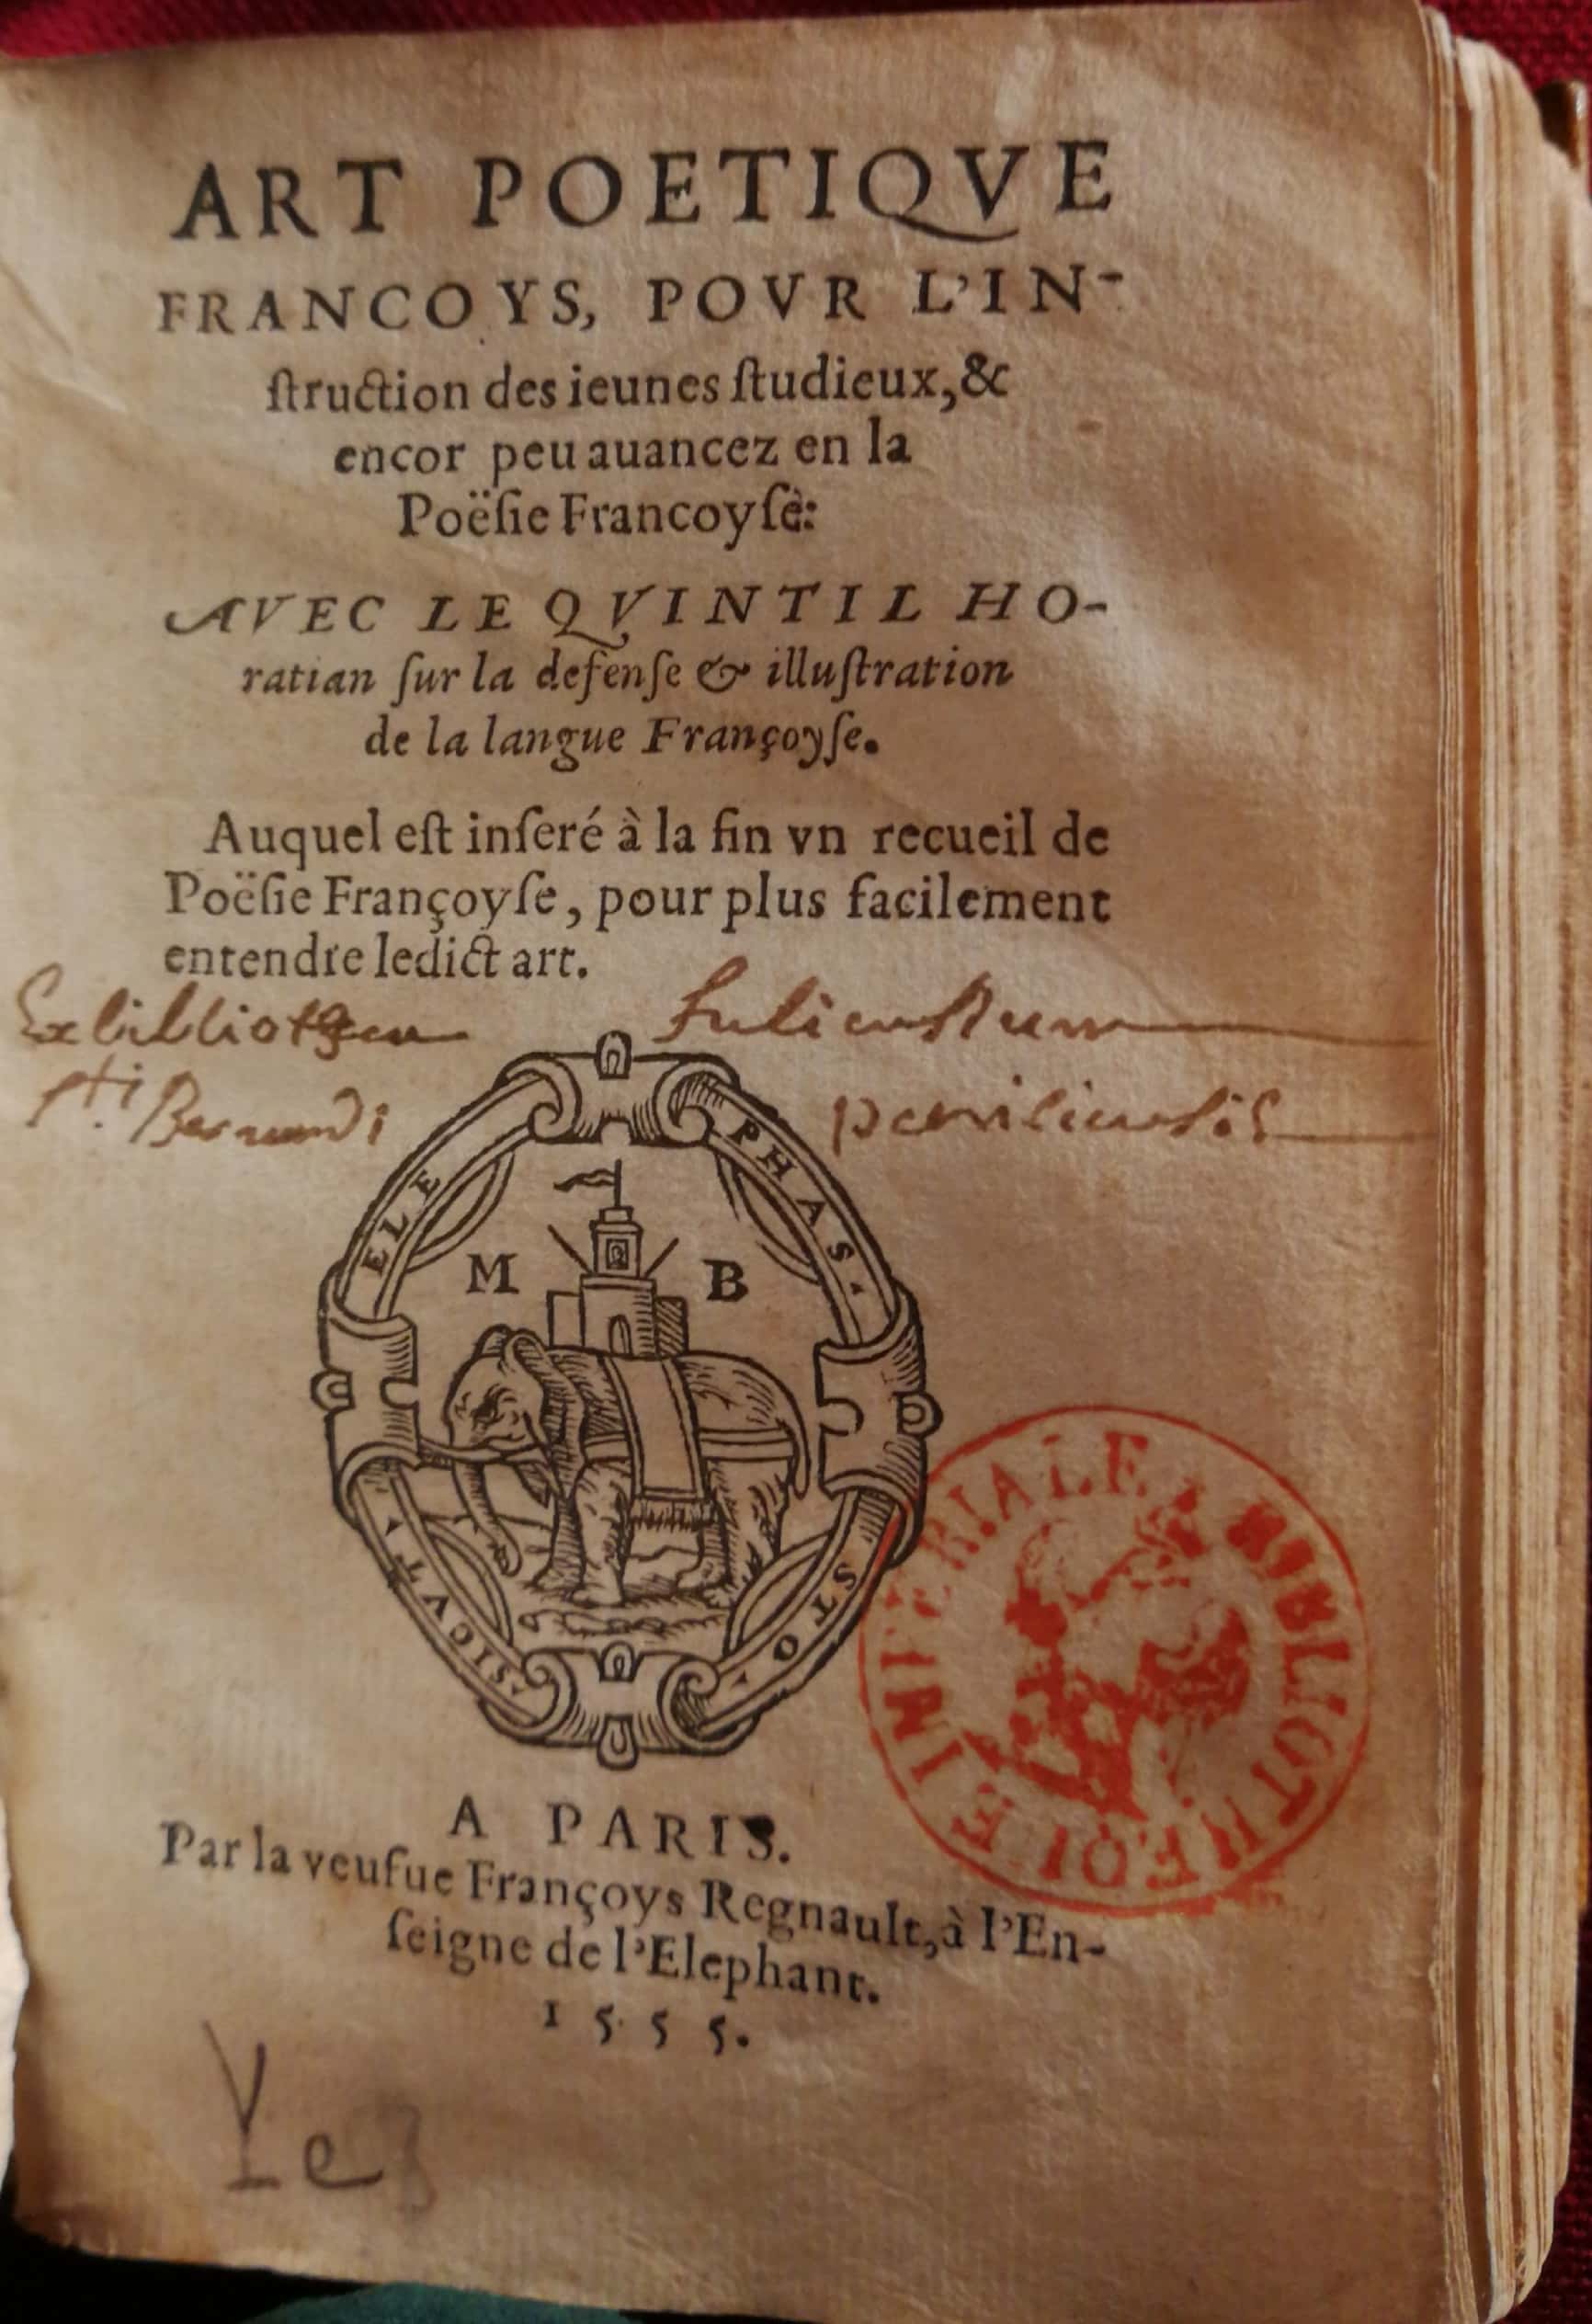 ART POETIQVE
FRANCOYS, POVR L'IN-
ſtruction des ieunes ſtudieux, &
encor peu auancez en la
Poëſie Francoyſe:
AVEC LE QVINTIL HO-
ratian ſur la defenſe & illuſtration
de la langue Françoyſe.
Auquel eſt inſeré à la fin vn recueil de
Poëſie Françoyſe, pour plus facilement
entendre ledict art.
Ex bibliotheca
sti Bernardi
ELE PHAS.
M B
SICVT STO
BIBLIOTHEQUE IMPERIALE
A PARIS.
Par la veufue Françoys Regnault, à l'En-
ſeigne de l'Elephant.
1555.
Ye